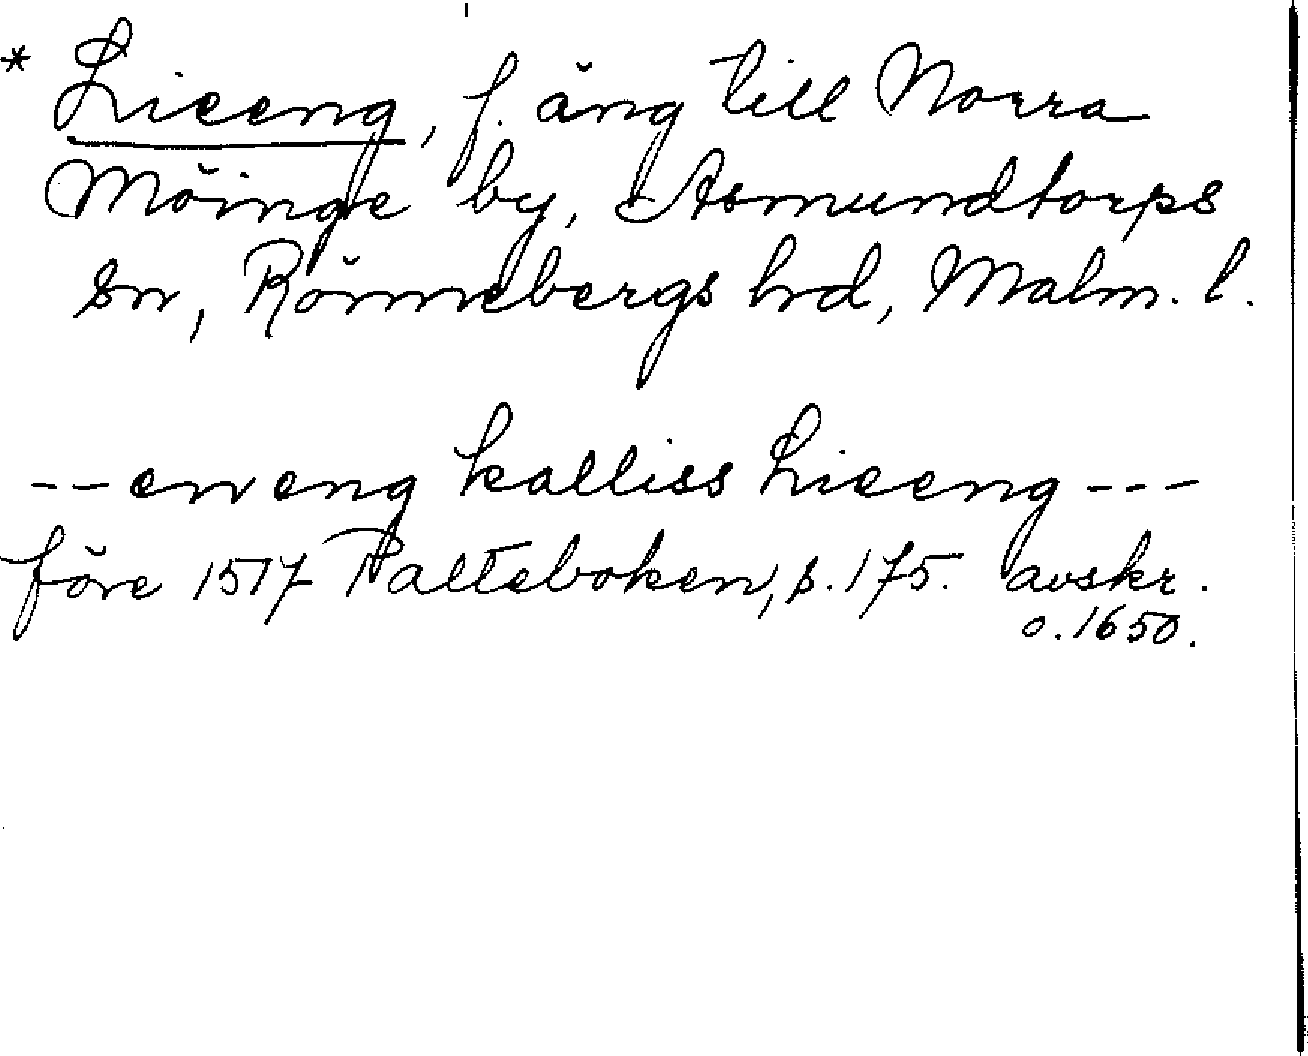 * Lieeng, f. äng till Norra
Möinge by, Asmundtorps
sn, Rönnebergs hd, Malm. l.
-- en eng kalliss Lieeng ---
före 1517 Palteboken, s. 175. avskr.
o. 1650.